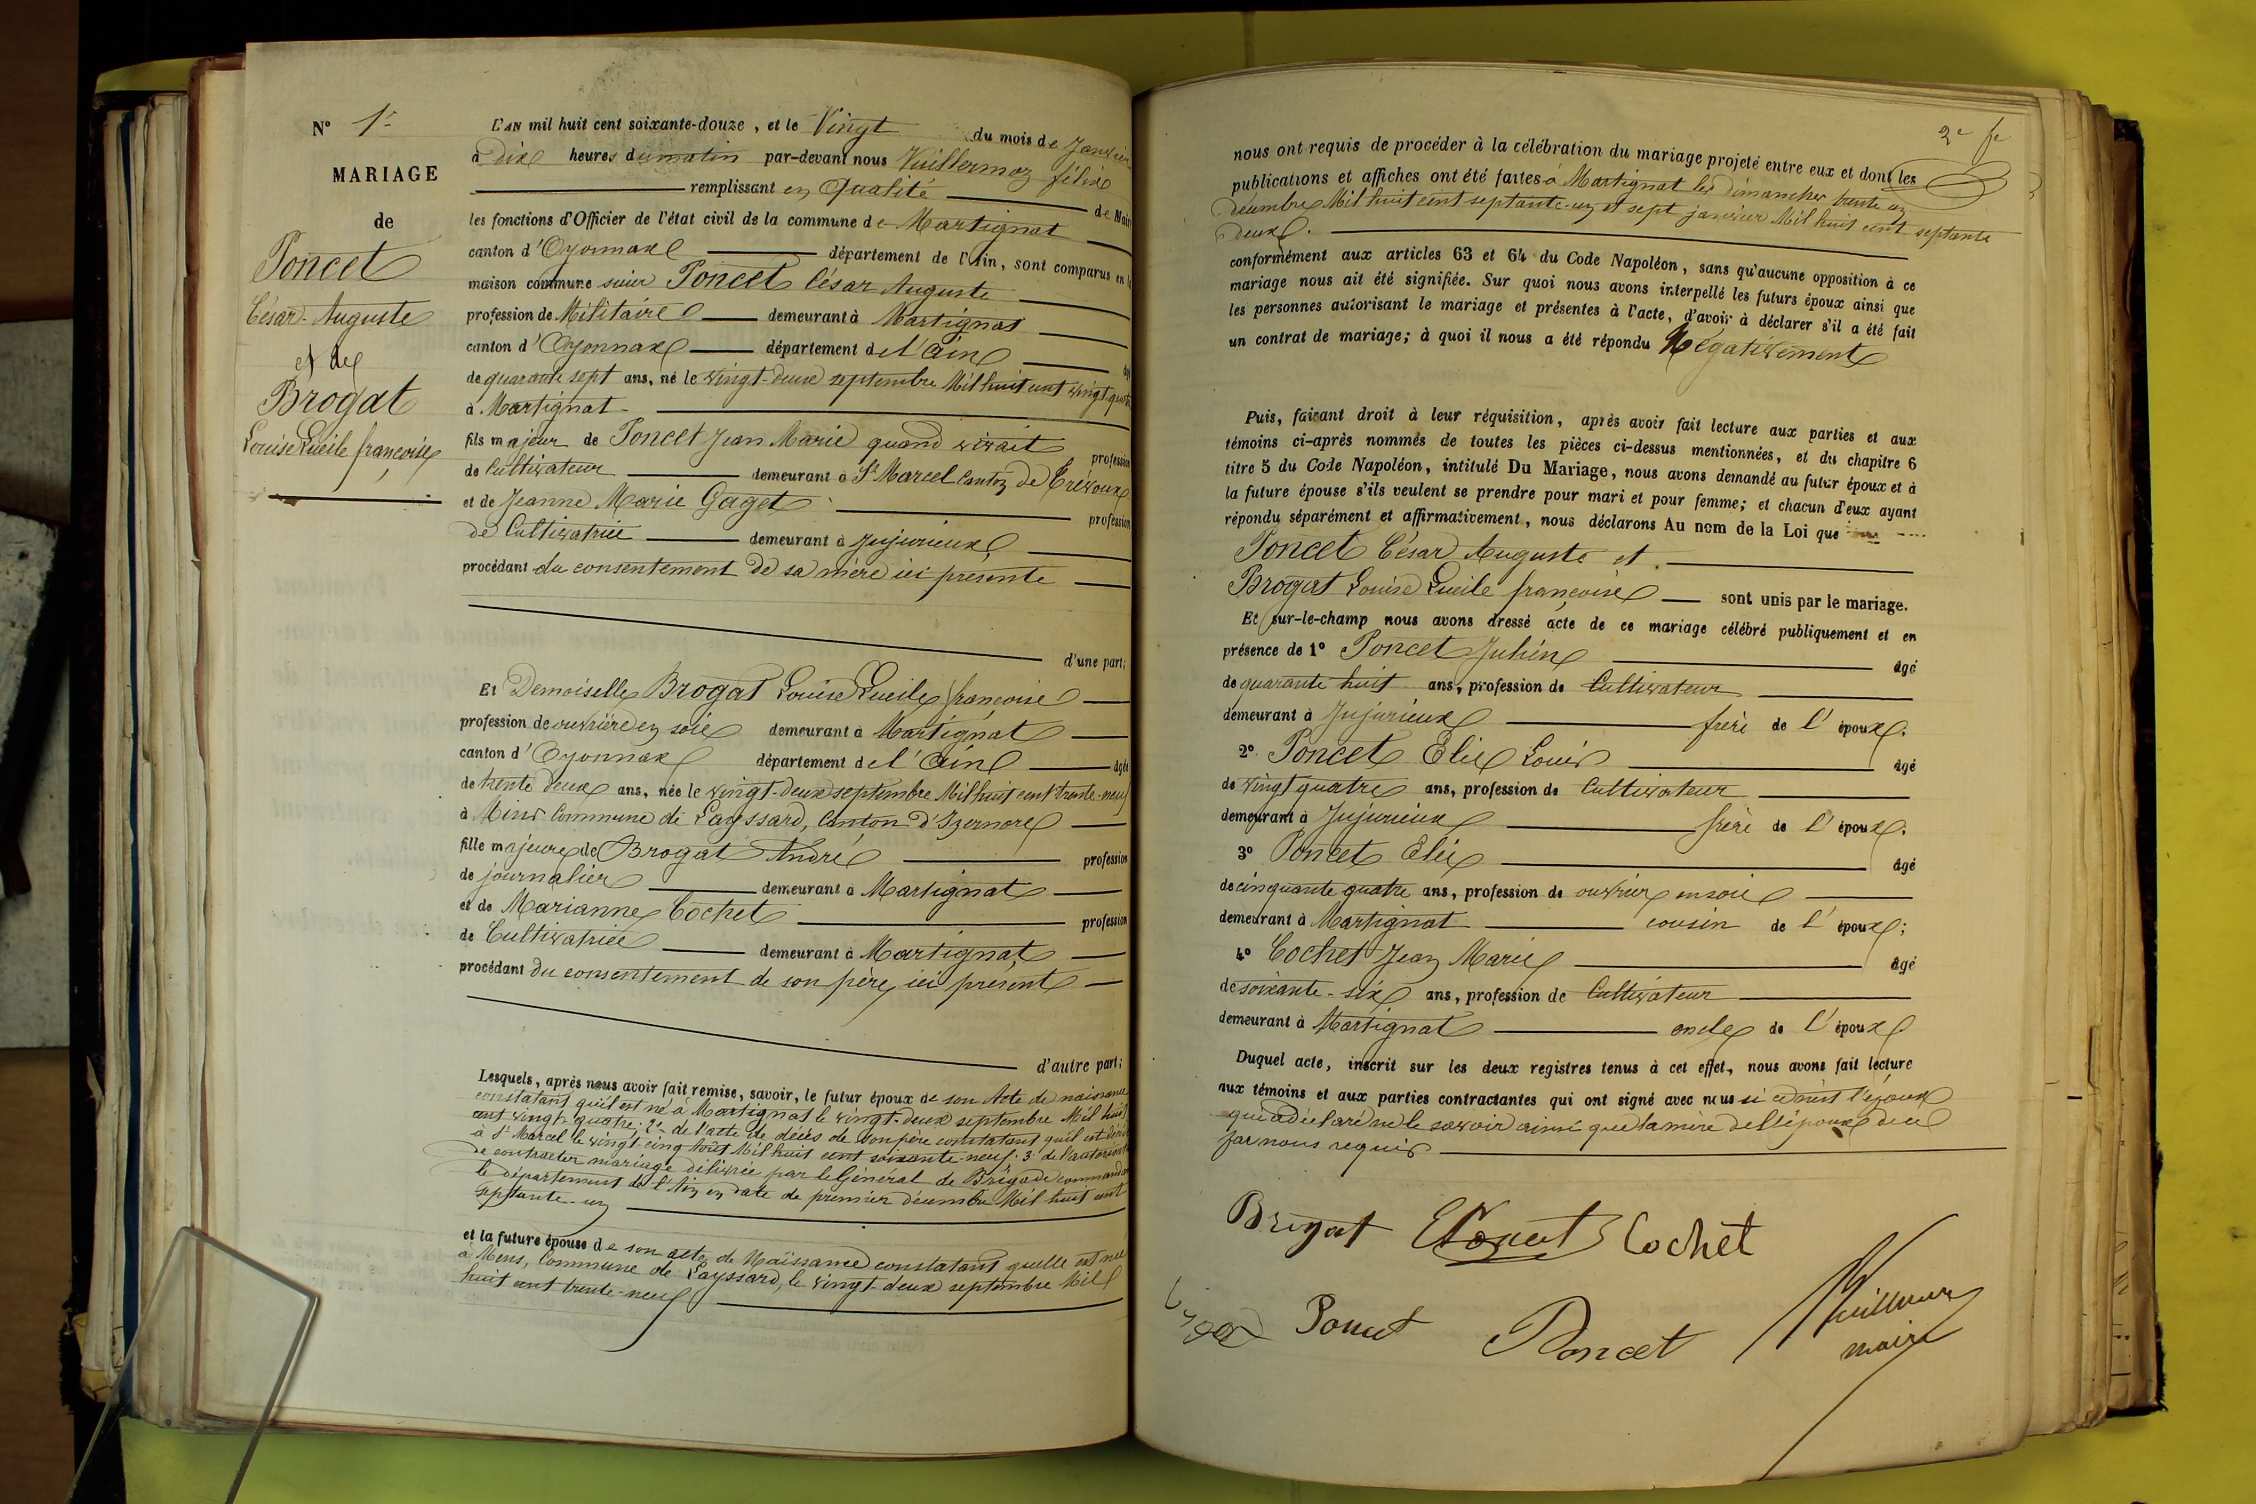 N° 1er
MARIAGE
de
Poncet
César-Auguste
et de
Brogat
Louise Lucile françoise
L'AN mil huit cent soixante-douze, et le Vingt du mois de Janvier
à Dix heures du matin par-devant nous Vuillermoz félix
remplissant en Qualité de Maire
les fonctions d'Officier de l'état civil de la commune de Martignat
canton d'Oyonnax département de l'Ain, sont comparus en la
maison commune sieur Poncet César Auguste
profession de Militaire demeurant à Martignat
canton d'Oyonnax département de l'Ain
de quarante sept ans, né le vingt-deux septembre Mil huit cent vingt-quatre
à Martignat
fils majeur de Poncet Jean Marie quand vivait profession
de Cultivateur demeurant à St Marcel Canton de Trévoux
et de Jeanne Marie Gaget profession
de Cultivatrice demeurant à Jujurieux
procédant du consentement de sa mère ici présente
d'une part;
Et Demoiselle Brogat Louise Lucile françoise
profession de ouvrière en soie demeurant à Martignat
canton d'Oyonnax département de l'Ain âgée
de trente deux ans, née le vingt-deux septembre Mil huit cent trente-neuf
à Mens Commune de Layssard, Canton d'Izernore
fille majeure de Brogat André profession
de journalier demeurant à Martignat
et de Marianne Cochet profession
de Cultivatrice demeurant à Martignat
procédant du consentement de son père, ici présent
d'autre part;
Lesquels, après nous avoir fait remise, savoir, le futur époux de son Acte de naissance
constatant qu'il est né à Martignat le vingt-deux septembre Mil huit
cent vingt-quatre; 2° de l'acte de décès de son père constatant qu'il est décédé
à St Marcel le vingt-cinq Août Mil huit cent soixante-neuf. 3° de l'autorisation
de contracter mariage délivrée par le Général de Brigade commandant
le département de l'Ain en date de premier décembre Mil huit cent
septante-un
et la future épouse de son acte de Naissance constatant quelle est née
à Mens, Commune de Layssard, le vingt-deux septembre Mil
huit cent trente-neuf
2e fe
nous ont requis de procéder à la célébration du mariage projeté entre eux et dont les
publications et affiches ont été faites à Martignat les dimanches trente un
décembre Mil huit cent septante-un et sept janvier Mil huit cent septante
deux.
conformément aux articles 63 et 64 du Code Napoléon, sans qu'aucune opposition à ce
mariage nous ait été signifiée. Sur quoi nous avons interpellé les futurs époux ainsi que
les personnes autorisant le mariage et présentes à l'acte, d'avoir à déclarer s'il a été fait
un contrat de mariage; à quoi il nous a été répondu Négativement
Puis, faisant droit à leur réquisition, après avoir fait lecture aux parties et aux
témoins ci-après nommés de toutes les pièces ci-dessus mentionnées, et du chapitre 6
titre 5 du Code Napoléon, intitulé Du Mariage, nous avons demandé au futur époux et à
la future épouse s'ils veulent se prendre pour mari et pour femme; et chacun d'eux ayant
répondu séparément et affirmativement, nous déclarons Au nom de la Loi que
Poncet César Auguste et
Brogat Louise Lucile françoise sont unis par le mariage.
Et sur-le-champ nous avons dressé acte de ce mariage célébré publiquement et en
présence de 1° Poncet Julien âgé
de quarante huit ans, profession de Cultivateur
demeurant à Jujurieux frère de l'époux.
2° Poncet Elie Louis âgé
de vingt quatre ans, profession de Cultivateur
demeurant à Jujurieux frère de l'époux.
3° Poncet Elie âgé
de cinquante quatre ans, profession de ouvrier en soie
demeurant à Martignat cousin de l'époux;
4° Cochet Jean Marie âgé
de soixante-six ans, profession de Cultivateur
demeurant à Martignat oncle de l'époux
Duquel acte, inscrit sur les deux registres tenus à cet effet, nous avons fait lecture
aux témoins et aux parties contractantes qui ont signé avec nous si ce n'est l'époux
qui a déclaré ne le savoir ainsi que la mère de l'époux de ce
par nous requis
Brogat EPoncet Cochet
Poncet Poncet Vuillermoz
maire